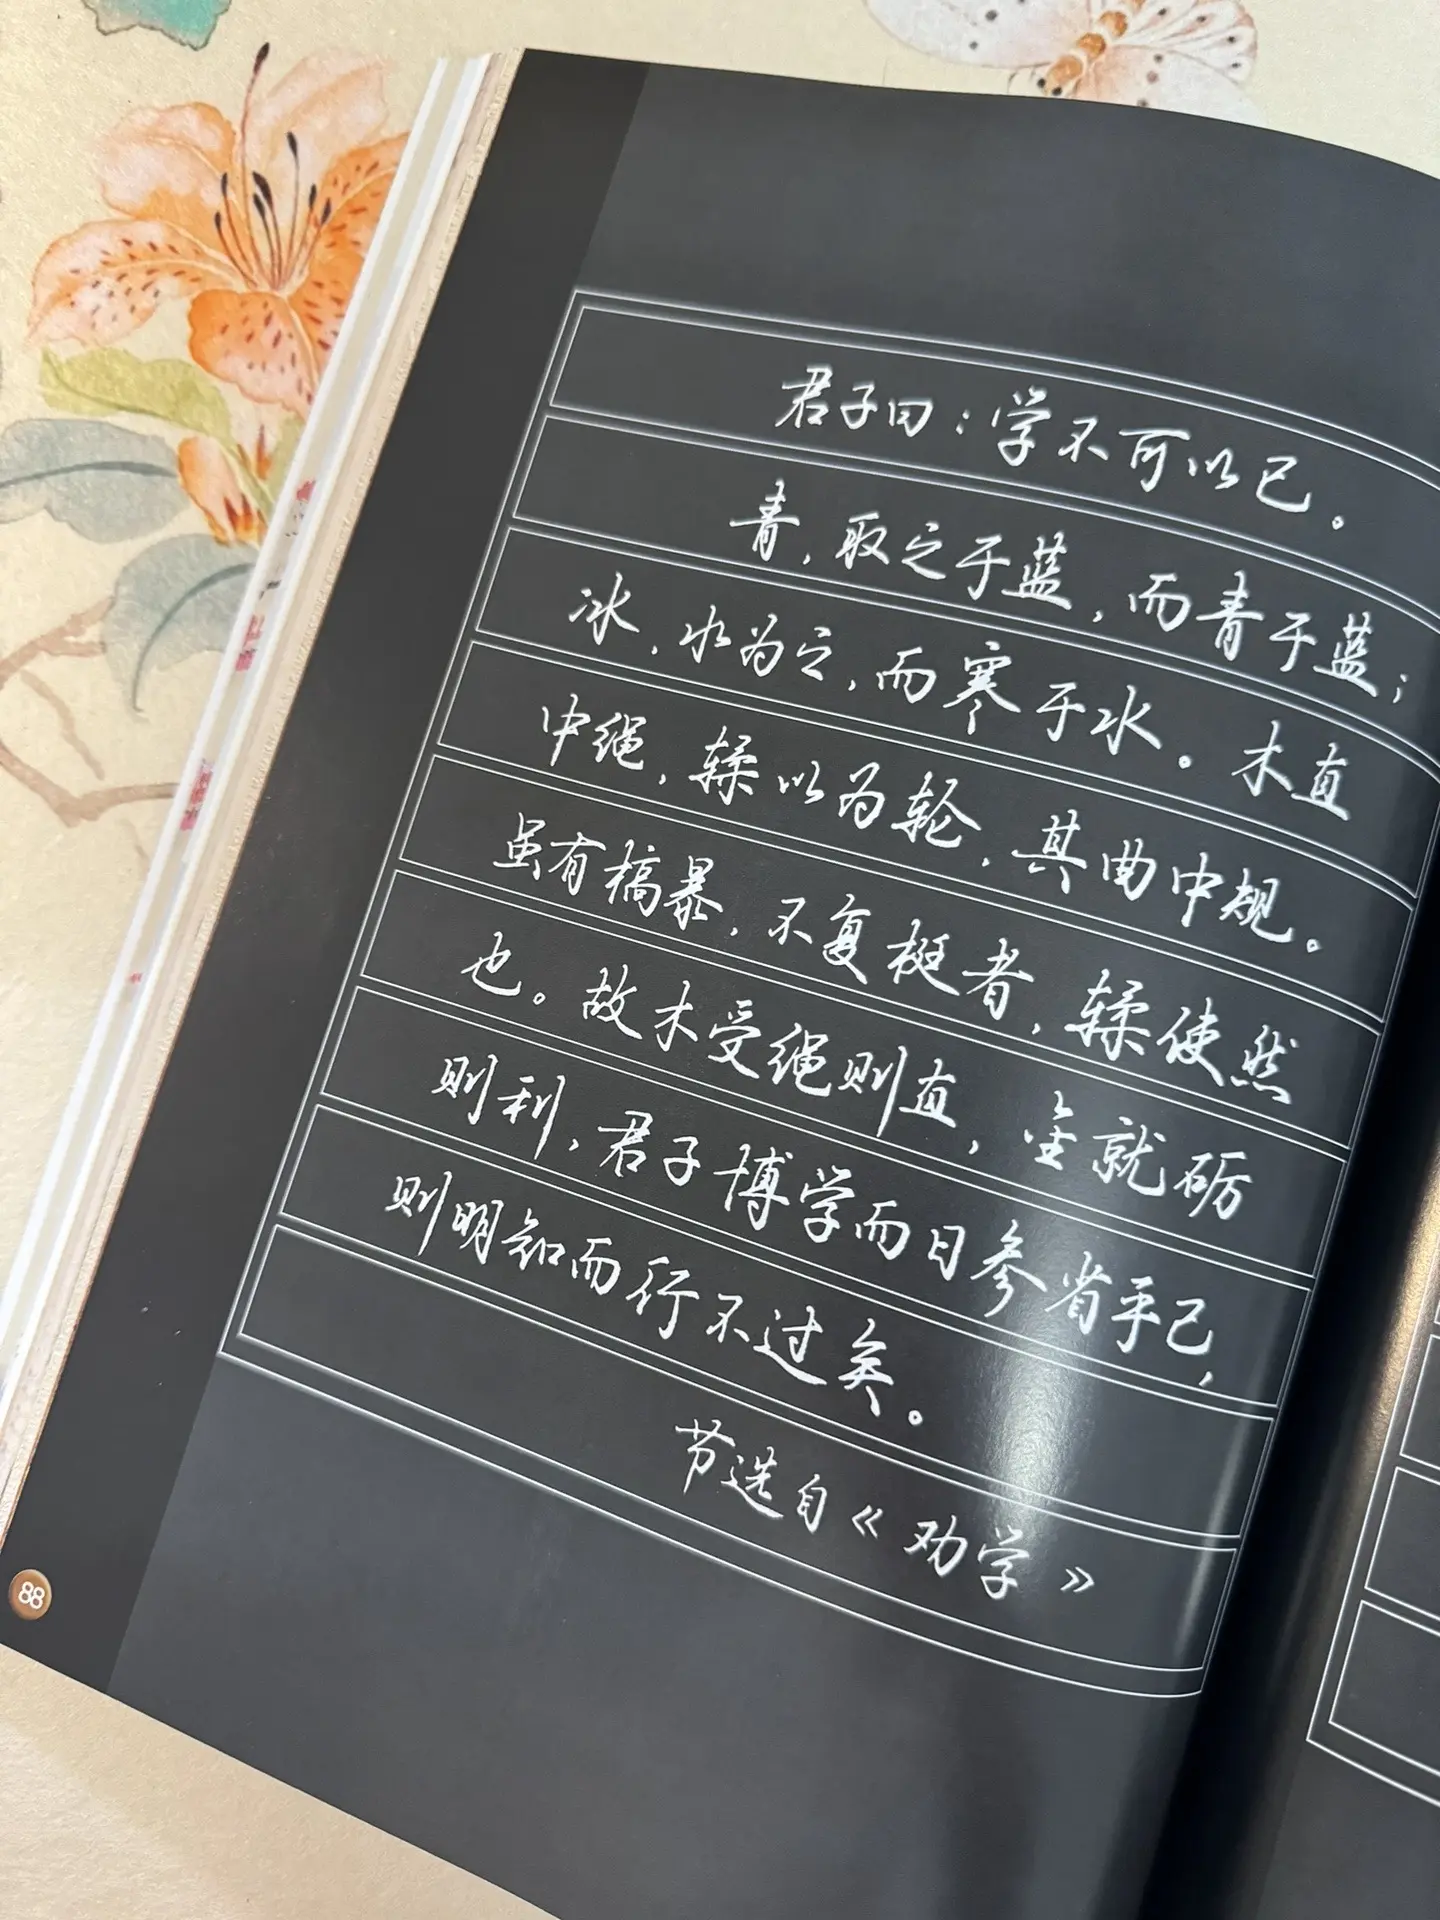 君子曰：学不可以已。
青，取之于蓝，而青于蓝；
冰，水为之，而寒于水。木直
中绳，輮以为轮，其曲中规。
虽有槁暴，不复挺者，輮使然
也。故木受绳则直，金就砺
则利，君子博学而日参省乎己，
则明知而行不过矣。
节选自《劝学》
88